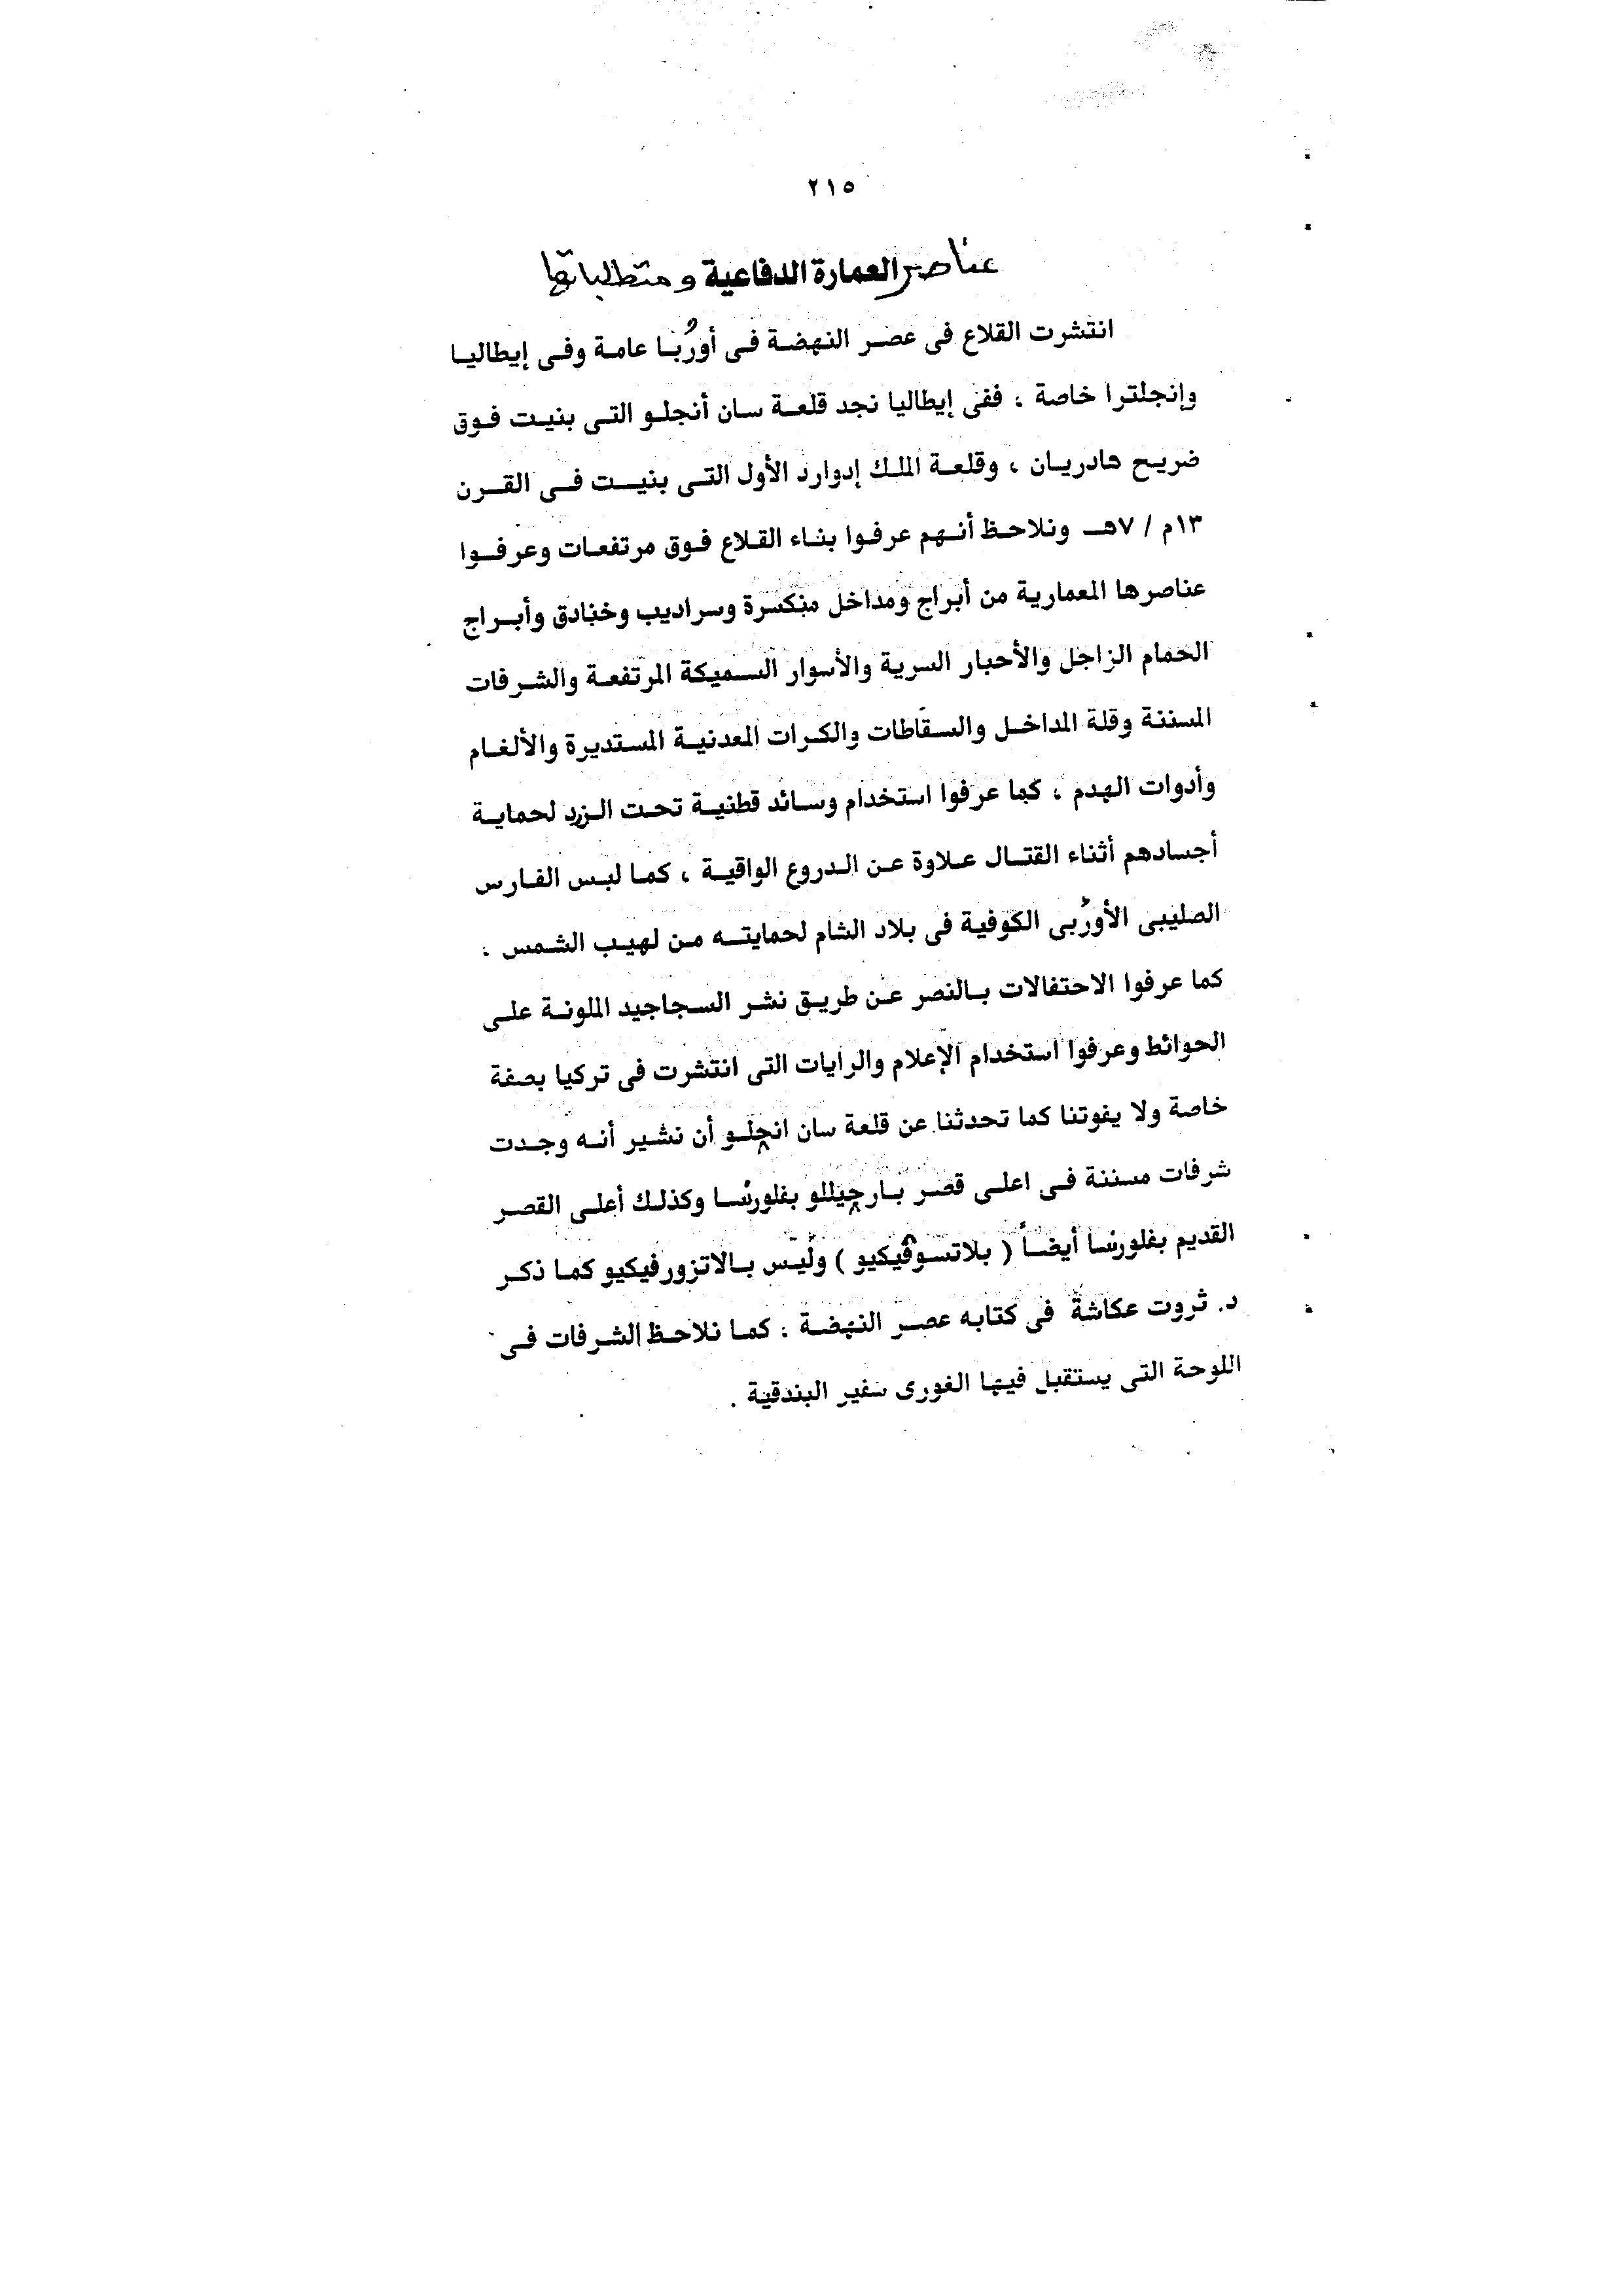 ٢١٥
عناصر العمارة الدفاعية ومتطلباتها
انتشرت القلاع فى عصر النهضة فى أوربا عامة وفى إيطاليا
وإنجلترا خاصة ، ففى إيطاليا نجد قلعة سان أنجلو التى بنيت فوق
ضريح هادريان ، وقلعة الملك إدوارد الأول التى بنيت فى القرن
١٣م / ٧هـ ونلاحظ أنهم عرفوا بناء القلاع فوق مرتفعات وعرفوا
عناصرها المعمارية من أبراج ومداخل منكسرة وسراديب وخنادق وأبراج
الحمام الزاجل والأحبار السرية والأسوار السميكة المرتفعة والشرفات
المسننة وقلة المداخل والسقاطات والكرات المعدنية المستديرة والألغام
وأدوات الهدم ، كما عرفوا استخدام وسائد قطنية تحت الزرد لحماية
أجسادهم أثناء القتال علاوة عن الدروع الواقية ، كما لبس الفارس
الصليبى الأوربى الكوفية فى بلاد الشام لحمايته من لهيب الشمس ،
كما عرفوا الاحتفالات بالنصر عن طريق نشر السجاجيد الملونة على
الحوائط وعرفوا استخدام الإعلام والرايات التى انتشرت فى تركيا بصفة
خاصة ولا يفوتنا كما تحدثنا عن قلعة سان انجلو أن نشير أنه وجدت
شرفات مسننة فى اعلى قصر بارجيللو بفلورنسا وكذلك أعلى القصر
القديم بفلورنسا أيضاً ( بلاتسوڤيكيو ) وليس بالاتزورفيكيو كما ذكر
د. ثروت عكاشة فى كتابه عصر النهضة ، كما نلاحظ الشرفات فى
اللوحة التى يستقبل فيها الغورى سفير البندقية .